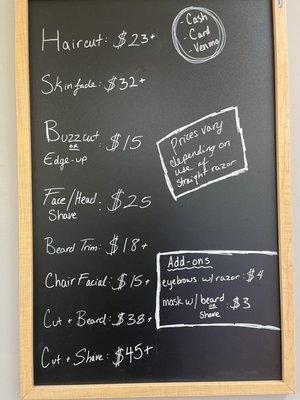 Haircut: $23+
- Cash
- Card
- Venmo
Skinfade: $32+
Buzzcut
OR
Edge-up
: $15
Prices vary
depending on
use of
straight razor
Face/Head
Shave
: $25
Beard Trim: $18+
Chair Facial: $15+
Cut + Beard: $38+
Cut + Shave: $45+
Add-ons
eyebrows w/ razor: $4
mask w/ beard
OR
Shave
: $3